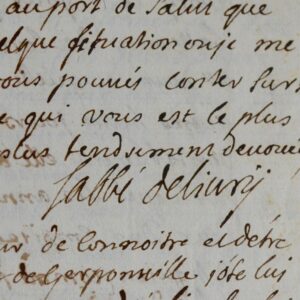 au port de salut que
elque situation ou je me
vous pouvés conter sur
e qui vous est le plus
plus tendrement devoué
l'abbé de livry
ur de connoitre et d'étre
de Gerponville j'ose lui